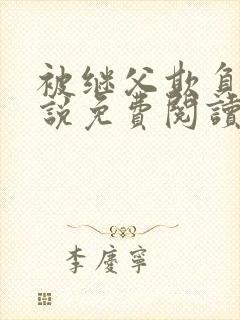 被继父欺负
說免費閱讀
李慶寧